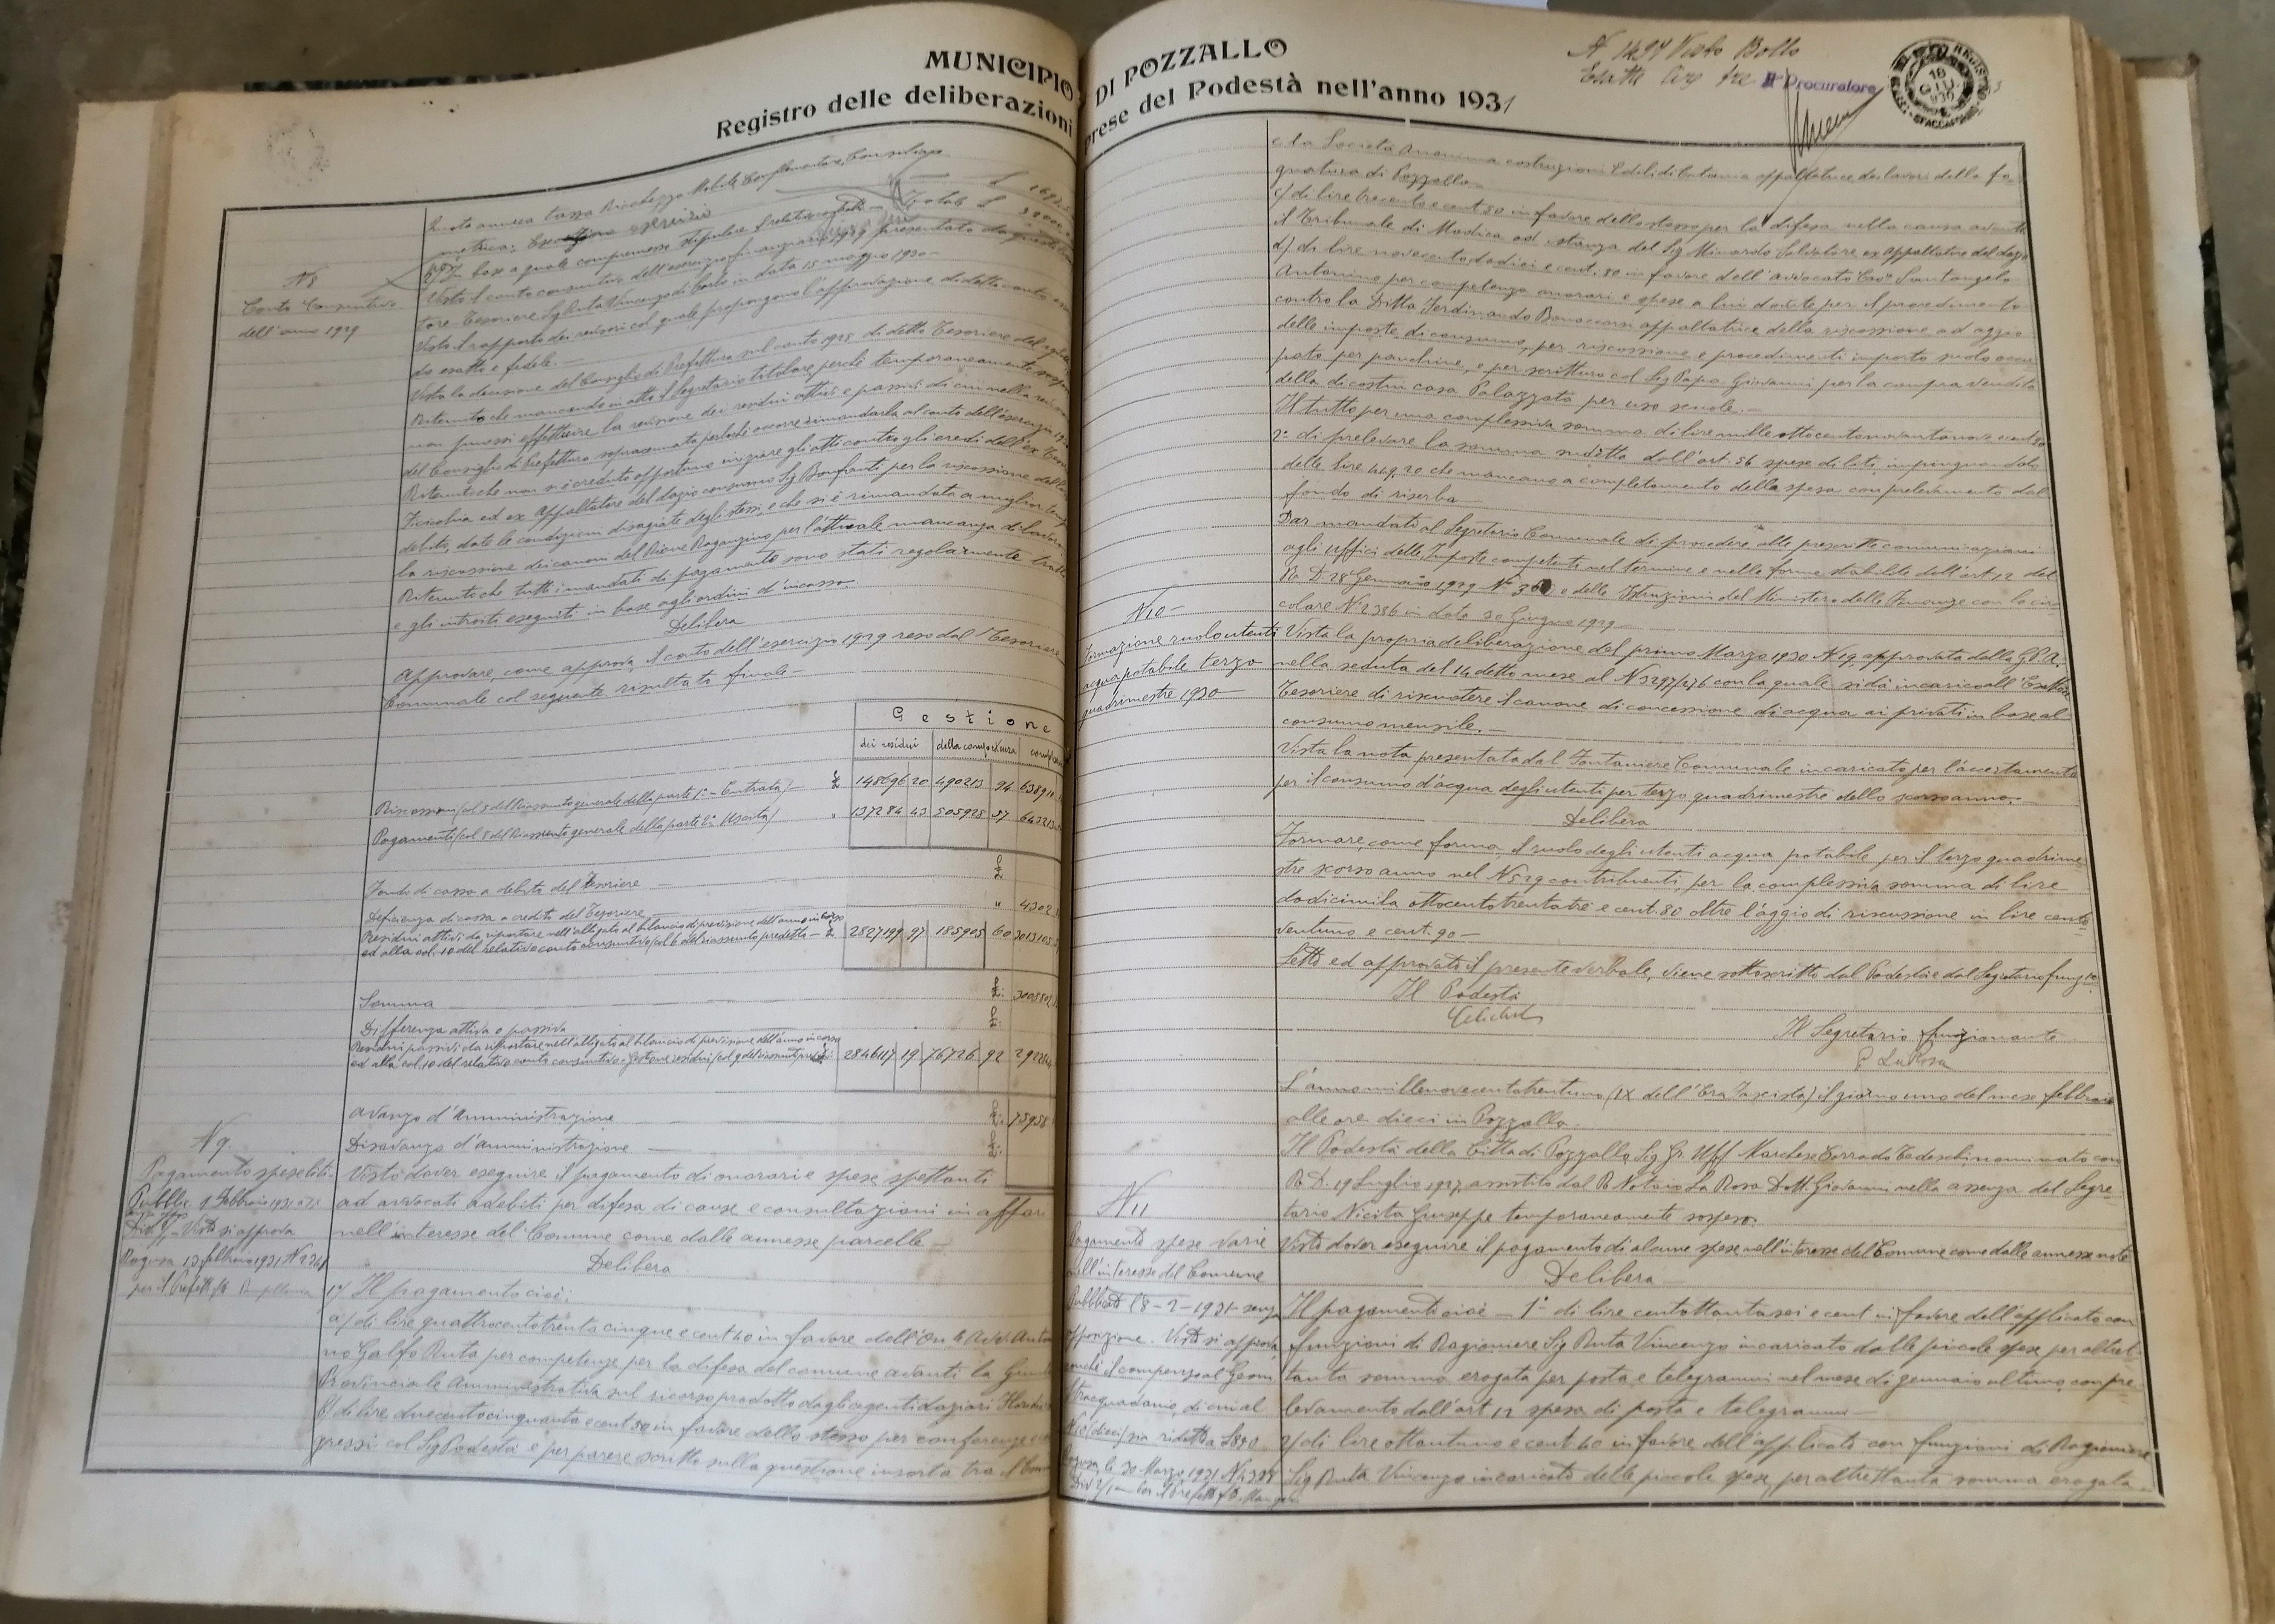 MUNICIPIO DI POZZALLO
Registro delle deliberazioni prese del Podestà nell'anno 1931
N 1497 Visto Bollo
Esatte Lire tre Il Procuratore
18
GIU
930
N 8
Conto Consuntivo
dell'anno 1929
Quota annua tassa Ricchezza Mobile, Complementare,
Totale £
Visto il conto consuntivo dell'esercizio finanziario 1929 presentato da questo
tore Tesoriere Sig Ruta Vincenzo di Carlo in data 15 maggio 1930 -
Visto il rapporto dei revisori col quale propongono l'approvazione di detto conto
do esatto e fedele. -
Vista la decisione del Consiglio di Prefettura sul conto 1928 di detto Tesoriere
Ritenuto che mancando in atto il Segretario titolare, perchè temporaneamente sospeso
non puossi effettuire la revisione dei residui attivi e passivi di cui nella
del Consiglio di Prefettura sopracennata perlochè occorre rimandarla al conto dell'esercizio
Ritenuto che non si è creduto opportuno iniziare gli atti contro gli eredi dell'ex
ed ex appaltatore del dazio consumo Sig Bonfanti per la riscossione
debito, date le condizioni disagiate degli stessi, e che si è rimandata a miglior
la riscossione dei canoni del Rione Raganzino per l'attuale mancanza di lavoro
Ritenuto che tutti i mandati di pagamento sono stati regolarmente
e gli introiti eseguiti in base agli ordini d'incasso.
Delibera
Approvare, come approva, il conto dell'esercizio 1929 reso dal Tesoriere
Comunale col seguente risultato finale -
Gestione
dei residui della competenza
Riscossioni (col 5 del riassunto generale della parte 1ª - Entrata) £ 148696 20 490213 94
Pagamenti (col 8 del Riassunto generale della parte 2ª Uscita) " 137284 43 505928 57
Fondo di cassa a debito del Tesoriere £
Deficienza di cassa a credito del Tesoriere " 4302
Residui attivi da riportare nell'allegato al bilancio di previsione dell'anno in corso
ed alla col. 10 del relativo conto consuntivo (col 6 del riassunto predetto - £ 2827199 97 185905 60
Somma £:
Differenza attiva e passiva £:
Residui passivi da riportare nell'allegato al bilancio di previsione dell'anno in corso
ed alla col. 10 del relativo conto consuntivo 2846117 19 76726 92
Avanzo d'Amministrazione £:
Disavanzo d'amministrazione - £:
N 9.
Pagamento spese liti.
Pubblic 9 Febbraio 1931
Visto si approva
Ragusa 13 febbraio 1931
per il Prefetto
Visto dover eseguire il pagamento di onorari e spese spettanti
ad avvocati adebiti per difesa di cause e consultazioni in affari
nell'interesse del Comune come dalle annesse parcelle -
Delibera
1º Il pagamento cioè:
a) di lire quattrocentotrentacinque e cent 40 in favore dell'On le Avv. Anto
no Galfo Ruta per competenze per la difesa del comune avanti la Giunta
Provinciale Amministrativa sul ricorso prodotto dagli agenti daziari
b) di lire duecentocinquanta e cent 50 in favore dello stesso per conferenze e
gressi col Sig Podestà e per parere scritto sulla questione insorta tra il
e la Società Anonima costruzioni Edili di Catania appaltatrice dei lavori della fo-
gnatura di Pozzallo -
c) di lire trecento e cent 50 in favore dello stesso per la difesa nella causa avanti
il Tribunale di Modica ad istanza del Sig Minardo Salvatore ex appaltatore del dazio
d) di lire novecentododici e cent. 80 in favore dell'avvocato Cav. Santangelo
Antonino per competenze onorari e spese a lui dovute per il procedimento
contro la Ditta Ferdinando Bonaccorsi appaltatrice della riscossione ad aggio
delle imposte di consumo, per riscossione e procedimenti importo suolo occu
pato per panchine, e per scrittura col Sig Papa Giovanni per la compra vendita
della di costui casa Palazzata per uso scuole. -
Il tutto per una complessiva somma di lire mille ottocentonovantanove e cent 20
2º di prelevare la somma sudetta dall'art. 56 spese di liti, impinguandolo
delle lire 449.20 che mancano a completamento della spesa con prelevamento dal
fondo di riserba -
Dar mandato al Segretario Comunale di procedere alle prescritte comunicazioni
agli uffici delle Imposte competenti nel termine e nelle forme stabilite dell'art. 12 del
R. D. 28 Gennaio 1929 Nº e delle Istruzioni del Ministero delle Finanze con la cir
colare Nº 2386 in data 20 Giugno 1929 -
N 10 -
Formazione ruolo utenti
acqua potabile terzo
quadrimestre 1930 -
Vista la propria deliberazione del primo Marzo 1930 Nº 19, approvata dalla G.P.A.
nella seduta del 14 detto mese al N 5297/276 con la quale si dà incarico all'Esattore
Tesoriere di riscuotere il canone di concessione di acqua ai privati in base al
consumo mensile. -
Vista la nota presentata dal Fontaniere Comunale incaricato per l'accertamento
per il consumo d'acqua degli utenti per terzo quadrimestre dello scorso anno. -
Delibera
Formare, come forma, il ruolo degli utenti acqua potabile per il terzo quadrime
stre scorso anno nel N 529 contribuenti, per la complessiva somma di lire
dodicimila ottocentotrentatre e cent. 80 oltre l'aggio di riscussione in lire cento
ventuno e cent. 90 -
Letto ed approvato il presente verbale, viene sottoscritto dal Podestà e dal Segretario funz.
Il Podestà
Il Segretario funzionante
G. La Rosa
L'anno millenovecentotrentuno (IX dell'Era Fascista) il giorno uno del mese febbraio
alle ore dieci in Pozzallo.
Il Podestà della Città di Pozzallo, Sig Gr. Uff Marchese Corrado Tedeschi nominato con
R. D. 19 Luglio 1927, assistito dal R. Notaio La Rosa Dott. Giovanni nella assenza del Segre
tario Nicita Giuseppe temporaneamente sospeso.
N 11
Pagamento spese varie
nell'interesse del Comune
Pubblicato l'8-2-1931 senza
opposizione. Visto si approva
purchè il compenso al Geom
di cui al
sia ridotta L 850
Ragusa, lì 30 Marzo 1931
Visto dover eseguire il pagamento di alcune spese nell'interesse del Comune come dalle annesse note
Delibera -
Il pagamento cioè - 1º di lire centottantasei e cent in favore dell'applicato con
funzioni di Ragioniere Sig Ruta Vincenzo incaricato delle piccole spese per altret
tanta somma erogata per posta e telegrammi nel mese di gennaio ultimo, con pre
levamento dall'art 12 spesa di posta e telegrammi -
2) di lire ottantuno e cent 40 in favore dell'applicato con funzioni di Ragioniere
Sig Ruta Vincenzo incaricato delle piccole spese, per altrettanta somma erogata